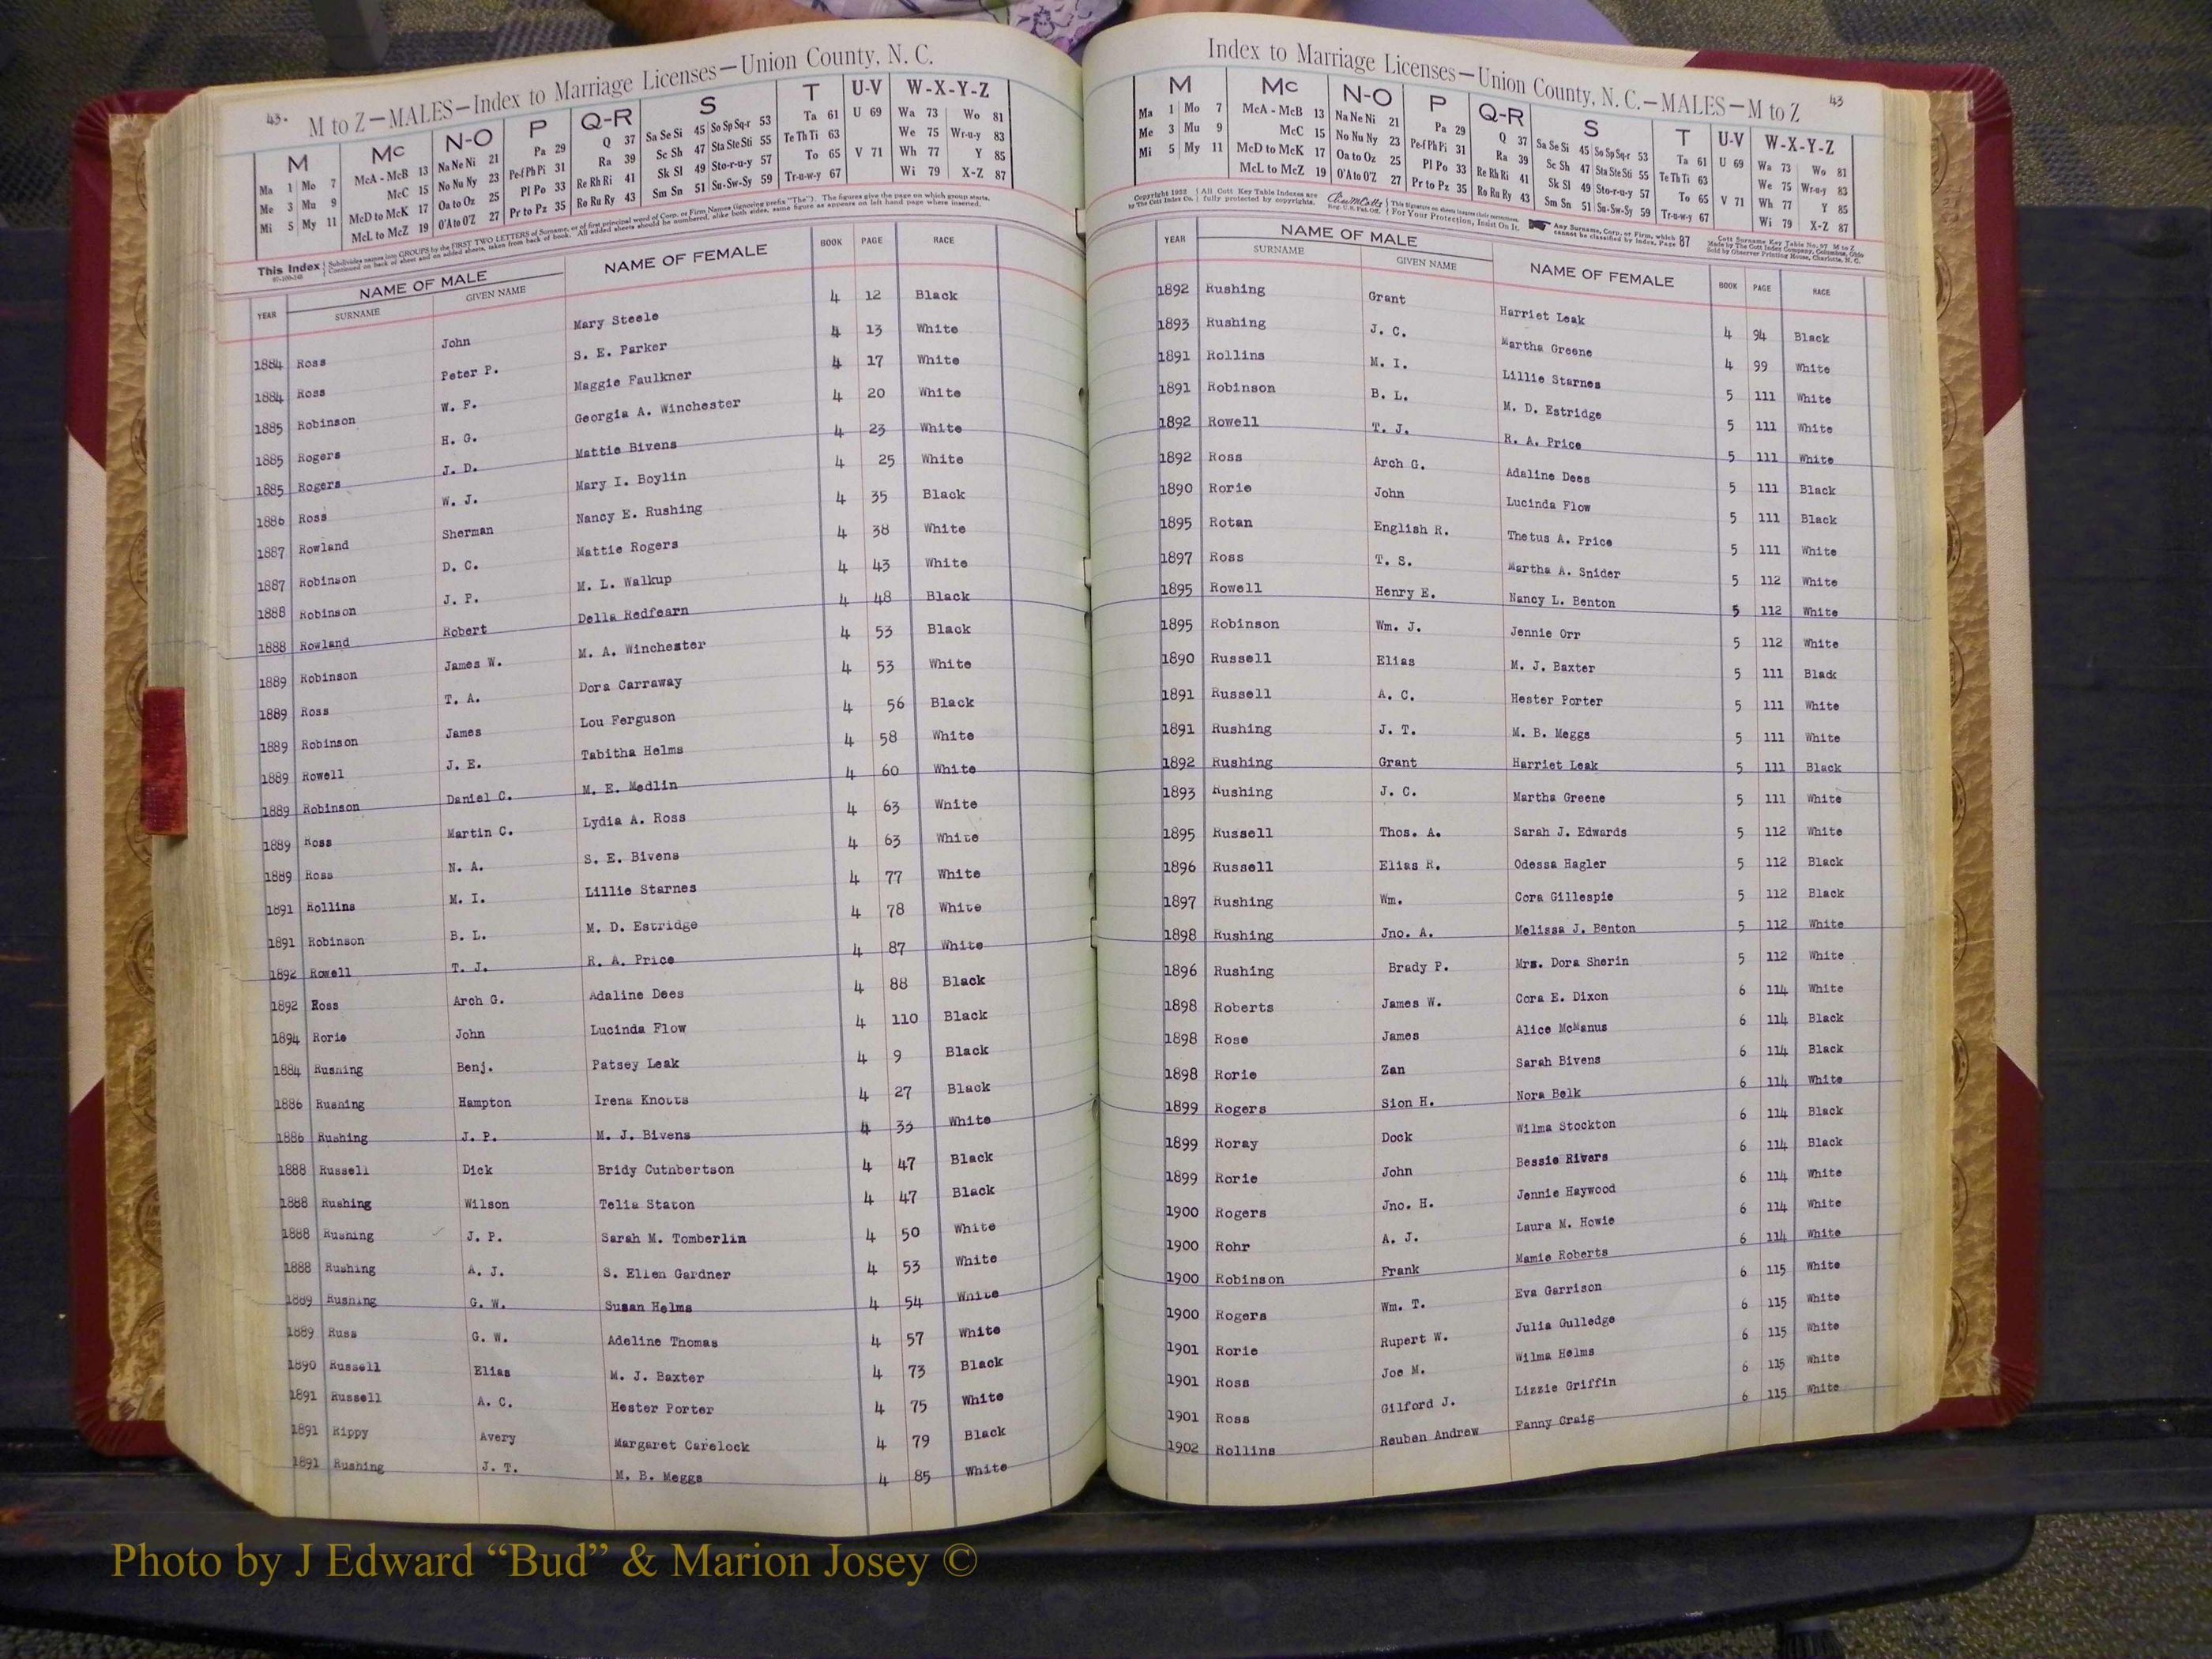 43.
M to Z—MALES—Index to Marriage Licenses—Union County, N. C.
M Mc N-O P Q-R S T U-V W-X-Y-Z
Ma 1 Mo 7 McA - McB 13 Na Ne Ni 21 Pa 29 Q 37 Sa Se Si 45 So Sp Sq-r 53 Ta 61 U 69 Wa 73 Wo 81
Me 3 Mu 9 McC 15 No Nu Ny 23 Pe-f Ph Pi 31 Ra 39 Sc Sh 47 Sta Ste Sti 55 Te Th Ti 63 We 75 Wr-u-y 83
Mi 5 My 11 McD to McK 17 Oa to Oz 25 Pl Po 33 Re Rh Ri 41 Sk Sl 49 Sto-r-u-y 57 To 65 V 71 Wh 77 Y 85
McL to McZ 19 O'A to O'Z 27 Pr to Pz 35 Ro Ru Ry 43 Sm Sn 51 Su-Sw-Sy 59 Tr-u-w-y 67 Wi 79 X-Z 87
This Index Subdivides names into GROUPS by the FIRST TWO LETTERS of Surname, or of first principal word of Corp. or Firm Names (ignoring prefix "The"). The figures give the page on which group starts.
Continued on back of sheet and on added sheets, taken from back of book. All added sheets should be numbered, alike both sides, same figure as appears on left hand page where inserted.
YEAR NAME OF MALE NAME OF FEMALE BOOK PAGE RACE
SURNAME GIVEN NAME
1884 Ross John Mary Steele 4 12 Black
1884 Ross Peter P. S. E. Parker 4 13 White
1885 Robinson W. F. Maggie Faulkner 4 17 White
1885 Rogers H. G. Georgia A. Winchester 4 20 White
1885 Rogers J. D. Mattie Bivens 4 23 White
1886 Ross W. J. Mary I. Boylin 4 25 White
1887 Rowland Sherman Nancy E. Rushing 4 35 Black
1887 Robinson D. C. Mattie Rogers 4 38 White
1888 Robinson J. P. M. L. Walkup 4 43 White
1888 Rowland Robert Della Redfearn 4 48 Black
1889 Robinson James W. M. A. Winchester 4 53 Black
1889 Ross T. A. Dora Carraway 4 53 White
1889 Robinson James Lou Ferguson 4 56 Black
1889 Rowell J. E. Tabitha Helms 4 58 White
1889 Robinson Daniel C. M. E. Medlin 4 60 White
1889 Ross Martin C. Lydia A. Ross 4 63 White
1889 Ross N. A. S. E. Bivens 4 63 White
1891 Rollins M. I. Lillie Starnes 4 77 White
1891 Robinson B. L. M. D. Estridge 4 78 White
1892 Rowell T. J. R. A. Price 4 87 White
1892 Ross Arch G. Adaline Dees 4 88 Black
1894 Rorie John Lucinda Flow 4 110 Black
1884 Rushing Benj. Patsey Leak 4 9 Black
1886 Rushing Hampton Irena Knotts 4 27 Black
1886 Rushing J. P. M. J. Bivens 4 35 White
1888 Russell Dick Bridy Cuthbertson 4 47 Black
1888 Rushing Wilson Telia Staton 4 47 Black
1888 Rushing J. P. Sarah M. Tomberlin 4 50 White
1888 Rushing A. J. S. Ellen Gardner 4 53 White
1889 Rushing G. W. Susan Helms 4 54 White
1889 Russ G. W. Adeline Thomas 4 57 White
1890 Russell Elias M. J. Baxter 4 73 Black
1891 Russell A. C. Hester Porter 4 75 White
1891 Rippy Avery Margaret Carelock 4 79 Black
1891 Rushing J. T. M. B. Meggs 4 85 White
Index to Marriage Licenses—Union County, N. C.—MALES—M to Z
43
M Mc N-O P Q-R S T U-V W-X-Y-Z
Ma 1 Mo 7 McA - McB 13 Na Ne Ni 21 Pa 29 Q 37 Sa Se Si 45 So Sp Sq-r 53 Ta 61 U 69 Wa 73 Wo 81
Me 3 Mu 9 McC 15 No Nu Ny 23 Pe-f Ph Pi 31 Ra 39 Sc Sh 47 Sta Ste Sti 55 Te Th Ti 63 We 75 Wr-u-y 83
Mi 5 My 11 McD to McK 17 Oa to Oz 25 Pl Po 33 Re Rh Ri 41 Sk Sl 49 Sto-r-u-y 57 To 65 V 71 Wh 77 Y 85
McL to McZ 19 O'A to O'Z 27 Pr to Pz 35 Ro Ru Ry 43 Sm Sn 51 Su-Sw-Sy 59 Tr-u-w-y 67 Wi 79 X-Z 87
Copyright 1932 by The Cott Index Co. All Cott Key Table Indexes are fully protected by copyrights. Reg. U.S. Pat. Off. This Signature on sheets insures their correctness. For Your Protection, Insist On It. Any Surname, Corp. or Firm, which cannot be classified by index, Page 87
Cott Surname Key Table No. 97 M to Z
Made by The Cott Index Company, Columbus, Ohio
Sold by Observer Printing House, Charlotte, N. C.
YEAR NAME OF MALE NAME OF FEMALE BOOK PAGE RACE
SURNAME GIVEN NAME
1892 Rushing Grant Harriet Leak 4 94 Black
1893 Rushing J. C. Martha Greene 4 99 White
1891 Rollins M. I. Lillie Starnes 5 111 White
1891 Robinson B. L. M. D. Estridge 5 111 White
1892 Rowell T. J. R. A. Price 5 111 White
1892 Ross Arch G. Adaline Dees 5 111 Black
1890 Rorie John Lucinda Flow 5 111 Black
1895 Rotan English R. Thetus A. Price 5 111 White
1897 Ross T. S. Martha A. Snider 5 112 White
1895 Rowell Henry E. Nancy L. Benton 5 112 White
1895 Robinson Wm. J. Jennie Orr 5 112 White
1890 Russell Elias M. J. Baxter 5 111 Black
1891 Russell A. C. Hester Porter 5 111 White
1891 Rushing J. T. M. B. Meggs 5 111 White
1892 Rushing Grant Harriet Leak 5 111 Black
1893 Rushing J. C. Martha Greene 5 111 White
1895 Russell Thos. A. Sarah J. Edwards 5 112 White
1896 Russell Elias R. Odessa Hagler 5 112 Black
1897 Rushing Wm. Cora Gillespie 5 112 Black
1898 Rushing Jno. A. Melissa J. Benton 5 112 White
1896 Rushing Brady P. Mrs. Dora Sherin 5 112 White
1898 Roberts James W. Cora E. Dixon 6 114 White
1898 Rose James Alice McManus 6 114 Black
1898 Rorie Zan Sarah Bivens 6 114 Black
1899 Rogers Sion H. Nora Belk 6 114 White
1899 Roray Dock Wilma Stockton 6 114 Black
1899 Rorie John Bessie Rivers 6 114 Black
1900 Rogers Jno. H. Jennie Haywood 6 114 White
1900 Rohr A. J. Laura M. Howie 6 114 White
1900 Robinson Frank Mamie Roberts 6 114 White
1900 Rogers Wm. T. Eva Garrison 6 115 White
1901 Rorie Rupert W. Julia Gulledge 6 115 White
1901 Ross Joe M. Wilma Helms 6 115 White
1901 Ross Gilford J. Lizzie Griffin 6 115 White
1902 Rollins Reuben Andrew Fanny Craig 6 115 White
Photo by J Edward “Bud” & Marion Josey ©